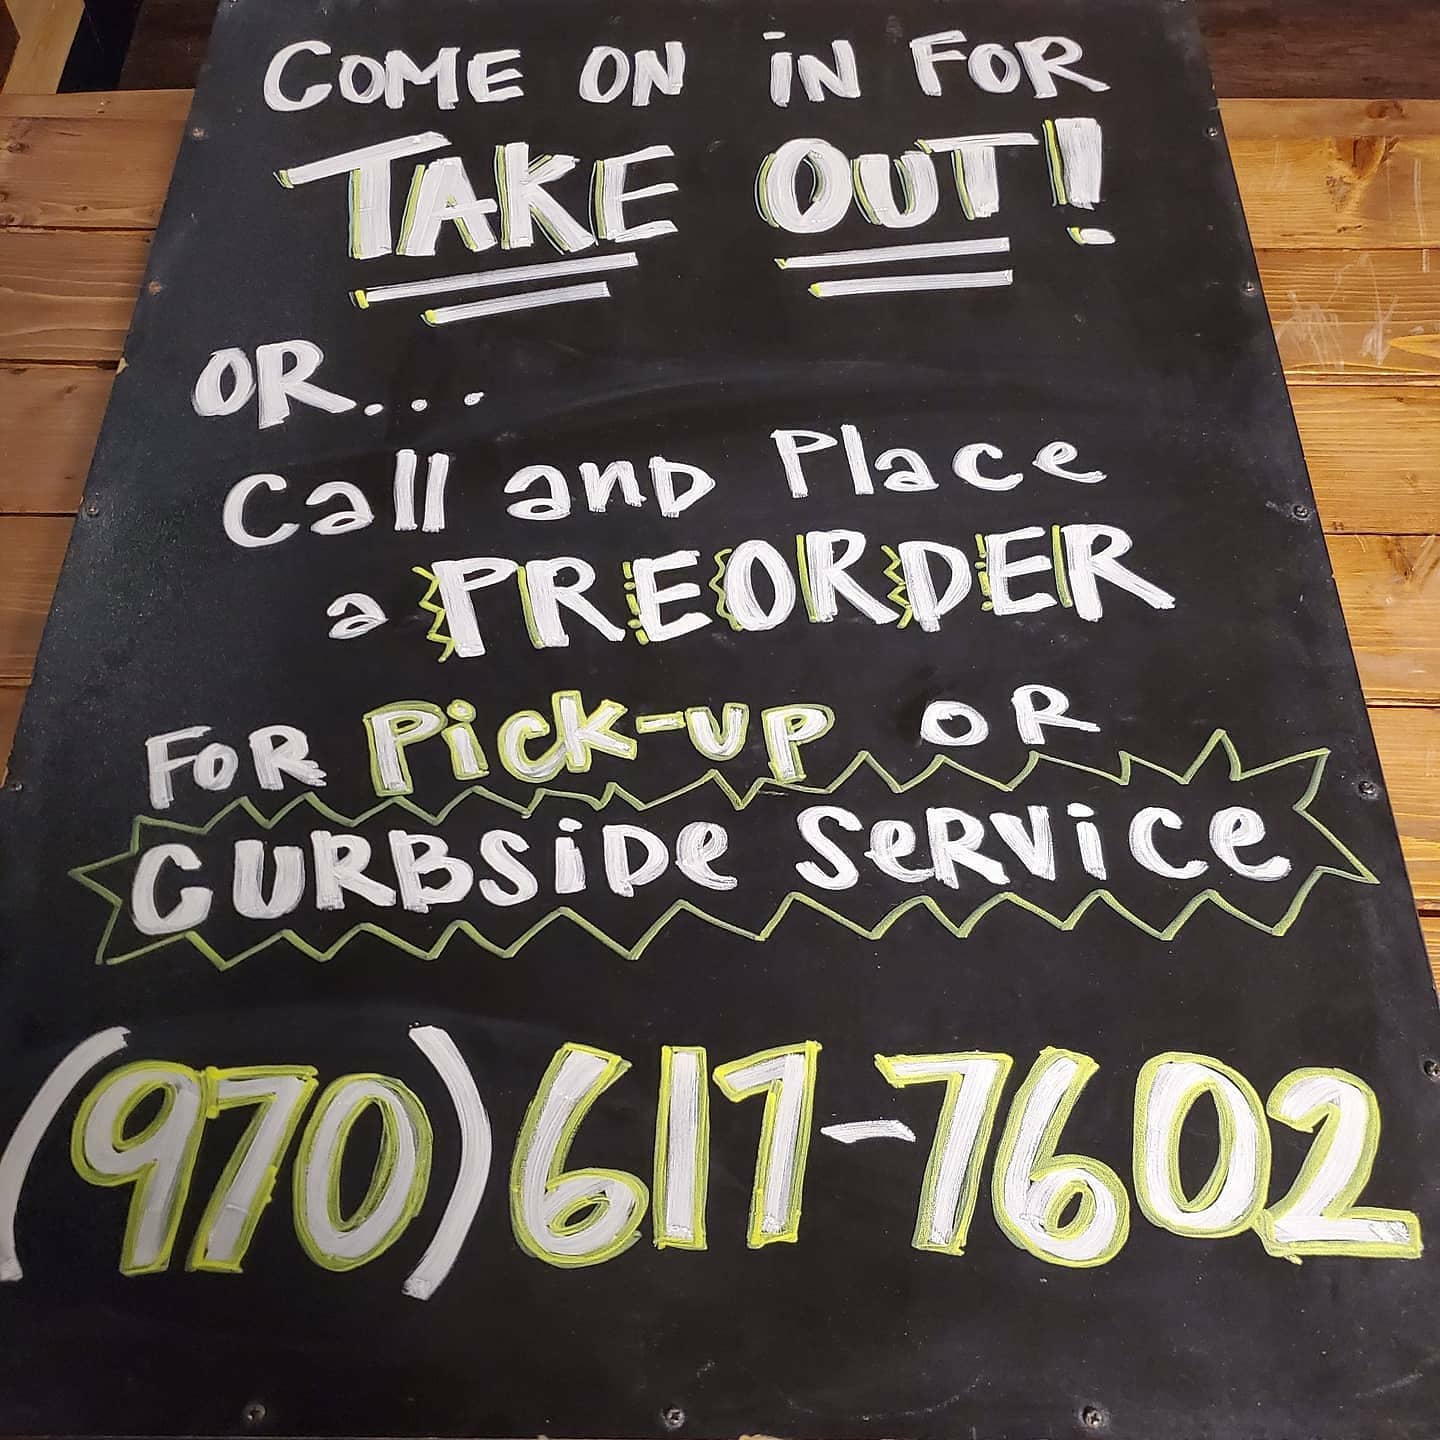 COME ON iN FOR
TAKE OUT!
OR...
Call and Place
a PREORDER
FOR Pick-up OR
CURBSiDe SeRViCe
(970)617-7602